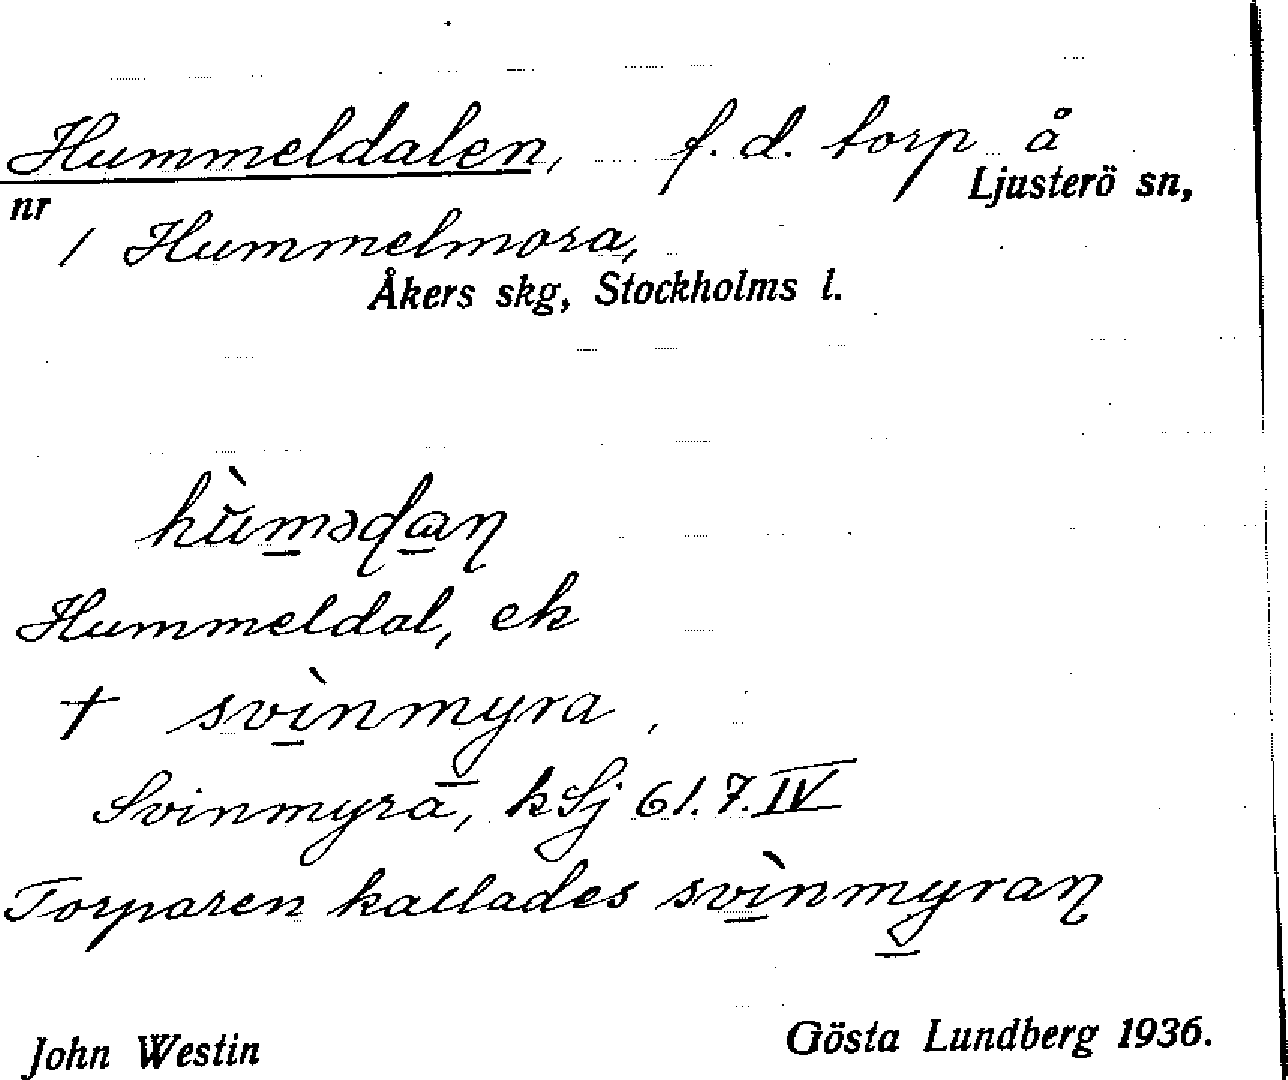 Hummeldalen, f. d. torp å
Ljusterö sn,
nr
1 Hummelmora,
Åkers skg, Stockholms l.
hùmədaṇ
Hummeldal, ek
† svìnmyra,
Svinmyra, kSj 61.7.IV
Torparen kallades svìnmyraṇ
John Westin Gösta Lundberg 1936.